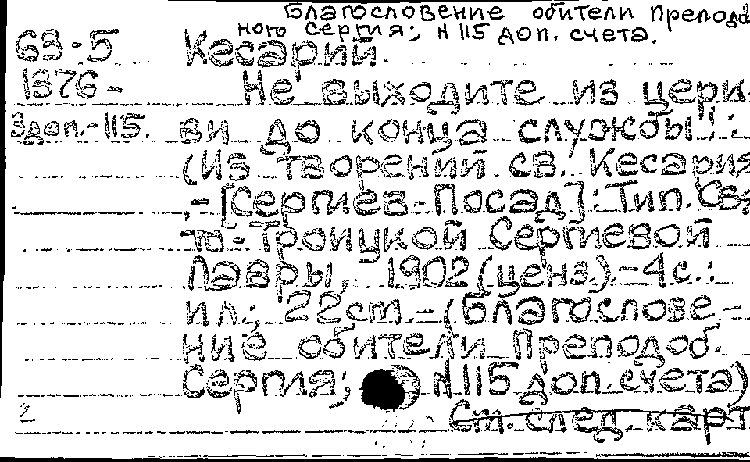 Благословение обители Преподоб
ного Сергия; N 115 доп. счета.
63-5 Кесарий.
1376- Не выходите из церк-
3доп.-115. ви до конца службы!:
(Из творений св. Кесария
.-[Сергиев-Посад]: Тип. Свя
т-Троицкой Сергиевой
Лавры, 1902 (ценз).-4с.:
ил.; 22см.-(Благослове-
ние обители Преподоб.
Сергия; N 115 доп. счета)
2 Ст. след. карт